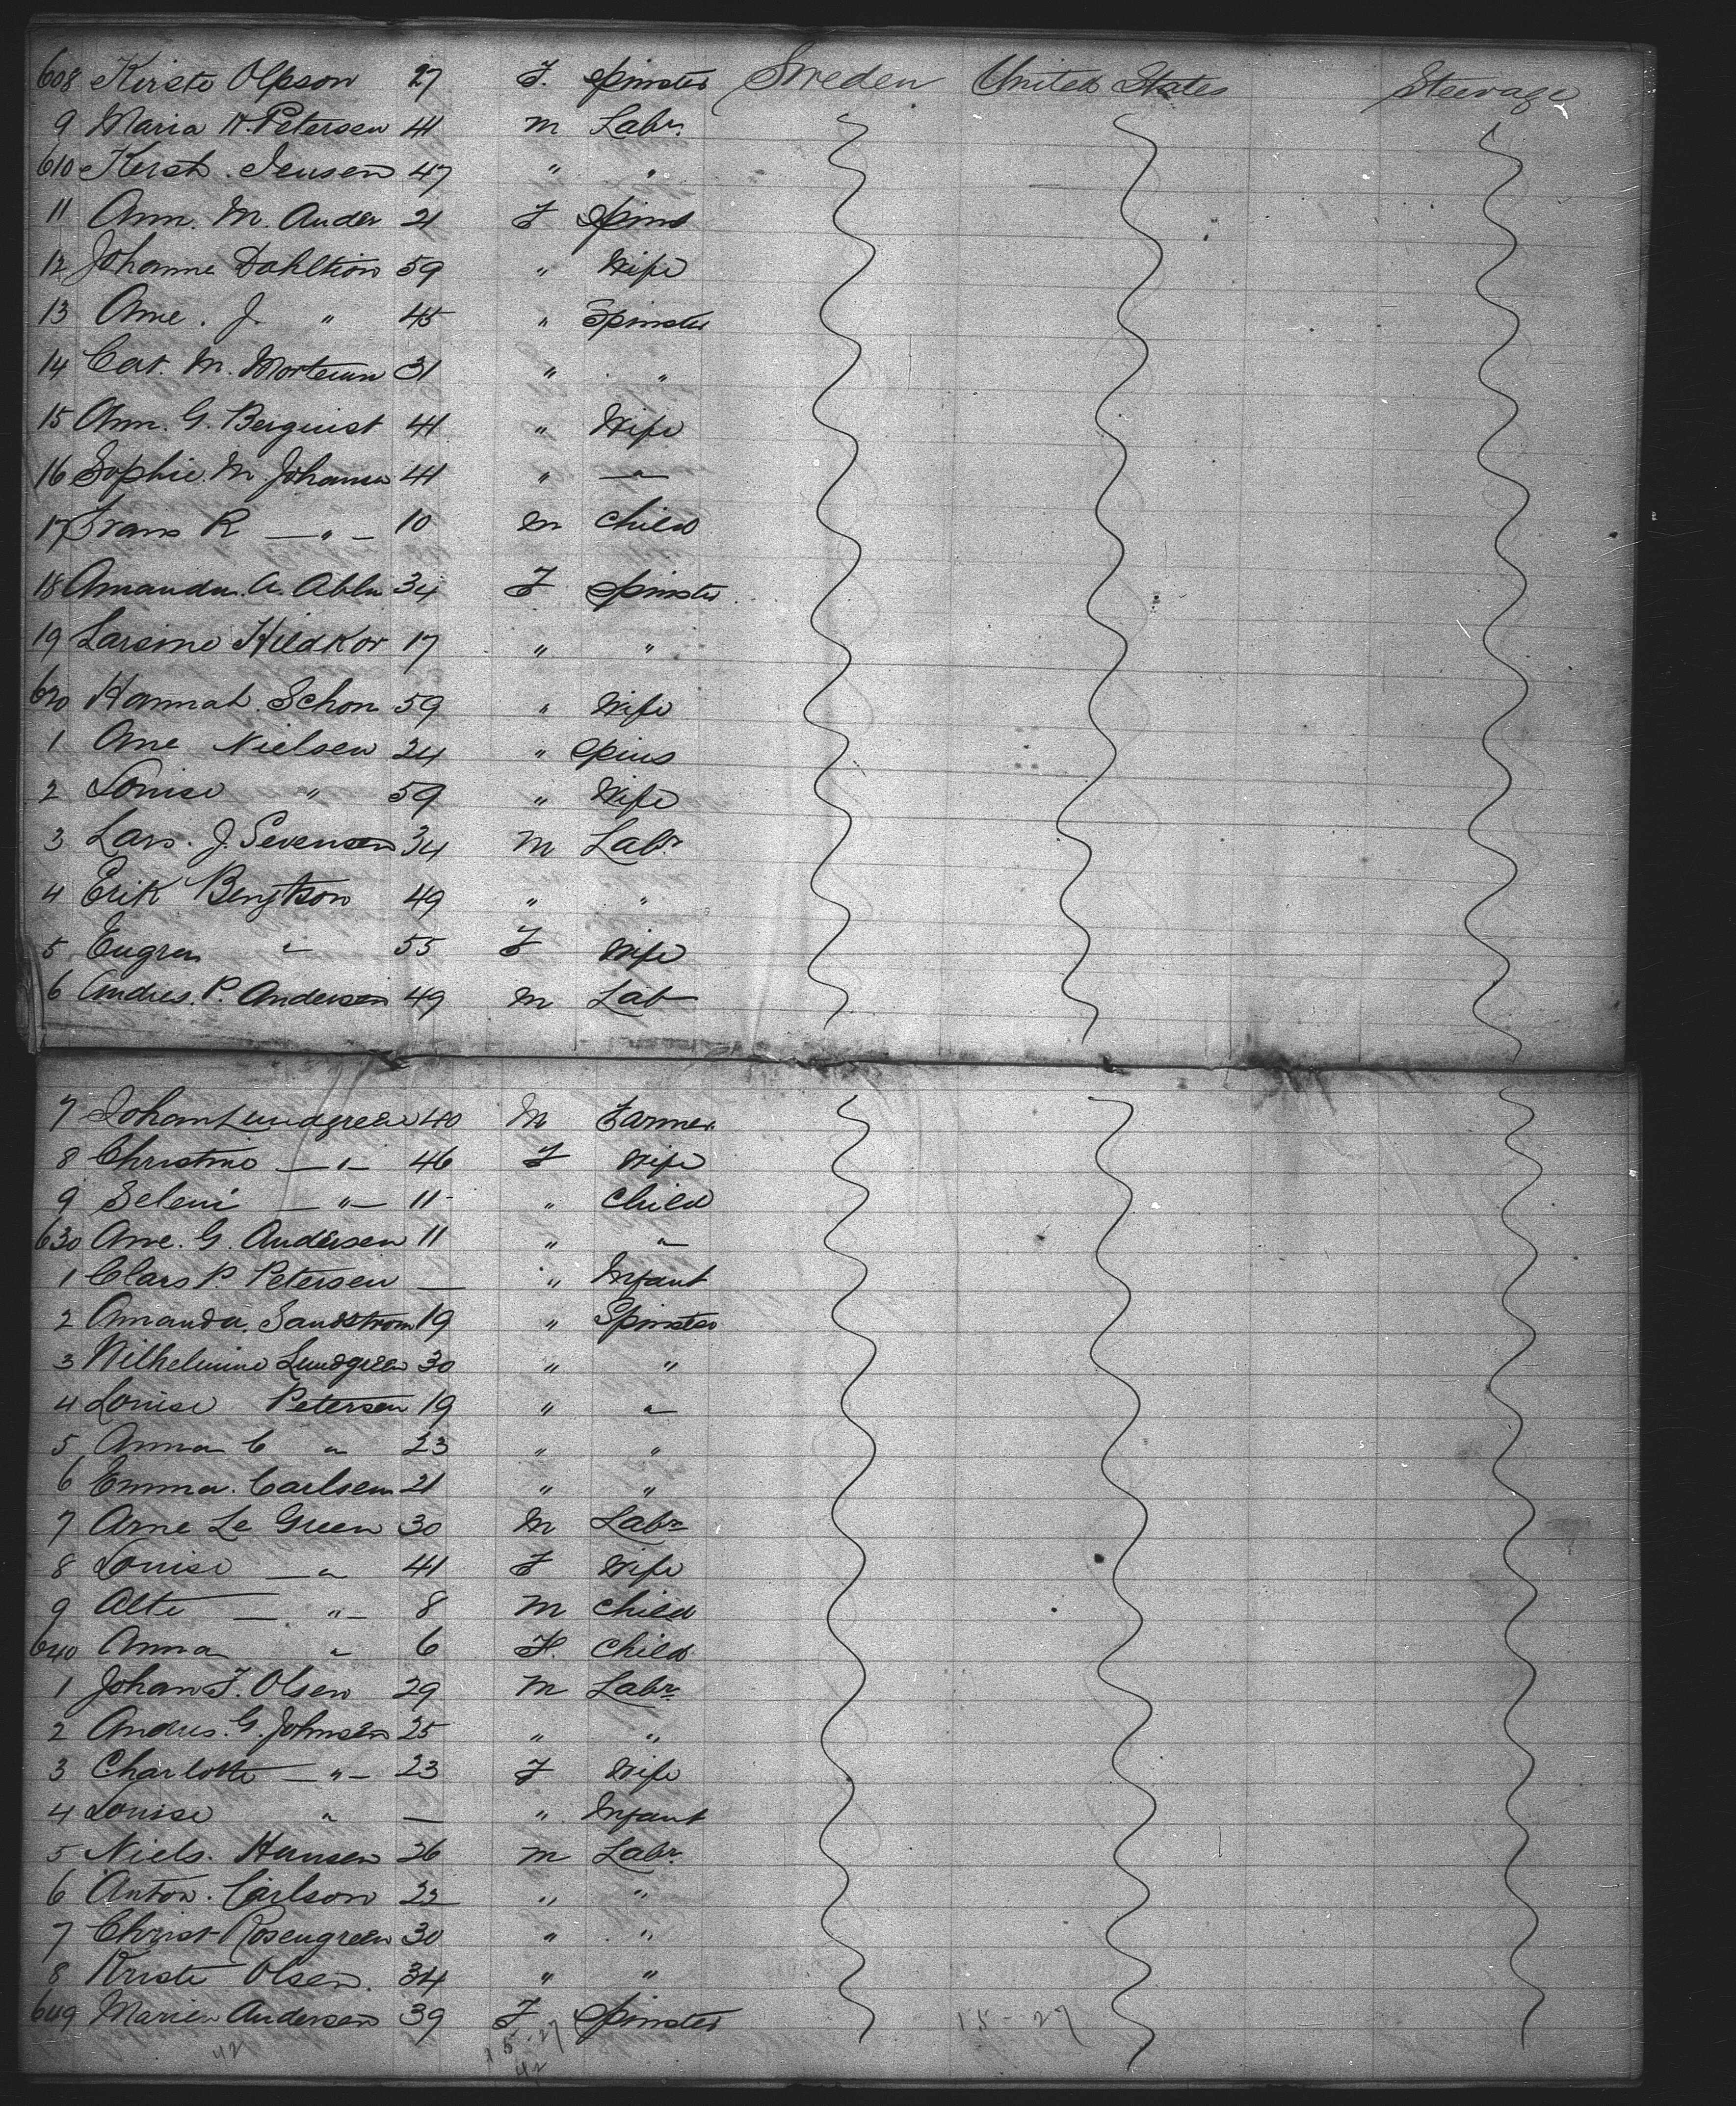 608 Kirste Olpson 27 F. Spinster Sweden United States Steerage
9 Maria N. Petersen 41 M Labr.
610 Kerst. Jensen 47 " "
11 Ann. M. Ander 21 F Spins
12 Johanne Dahltion 59 " Wife
13 Ane. J. " 45 " Spinster
14 Cat. M. 31 " "
15 Ann. G. Berquist 41 " Wife
16 Sophie. M. Johansen 41 " "
17 Frans R — " — 10 M Child
18 Amanda. A. 34 F Spinster
19 Larsine 17 " "
620 Hannah. Schon 59 " Wife
1 Ane Nielsen 24 " Spins
2 Louise " 59 " Wife
3 Lars. J. Sevensen 34 M Labr.
4 Erik Bengtson 49 " "
5 " 55 F Wife
6 Andres. P. Andersen 49 M Lab
7 Johan Lundgreen 40 M Farmer
8 Christine — " — 46 F Wife
9 Seleni — " — 11 " Child
630 Ane. G. Andersen 11 " "
1 Clars P. Petersen — " Infant
2 Amanda. Sandstrom 19 " Spinster
3 Wilhelmine Lundgreen 30 " "
4 Louise Petersen 19 " "
5 Anna C " 23 " "
6 Emma. Carlsen 21 " "
7 Arne Le Green 30 M Labr
8 Louise — " 41 F Wife
9 Alte — " — 8 M Child
640 Anna " 6 F. Child
1 Johan F. Olsen 29 M Labr
2 Andres. G. Johnsen 25 " "
3 Charlotte — " — 23 F Wife
4 Louise " — " Infant
5 Niels. Hansen 26 M Labr.
6 Anton. Carlson 22 " "
7 Christ Rosengreen 30 " "
8 Kriste Olsen. 34 " "
649 Marien Andersen 39 F Spinster
15-27 15-27
42 42